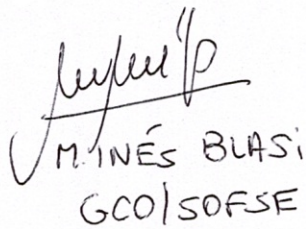 M. INÉS BLASi
GCO/SOFSE